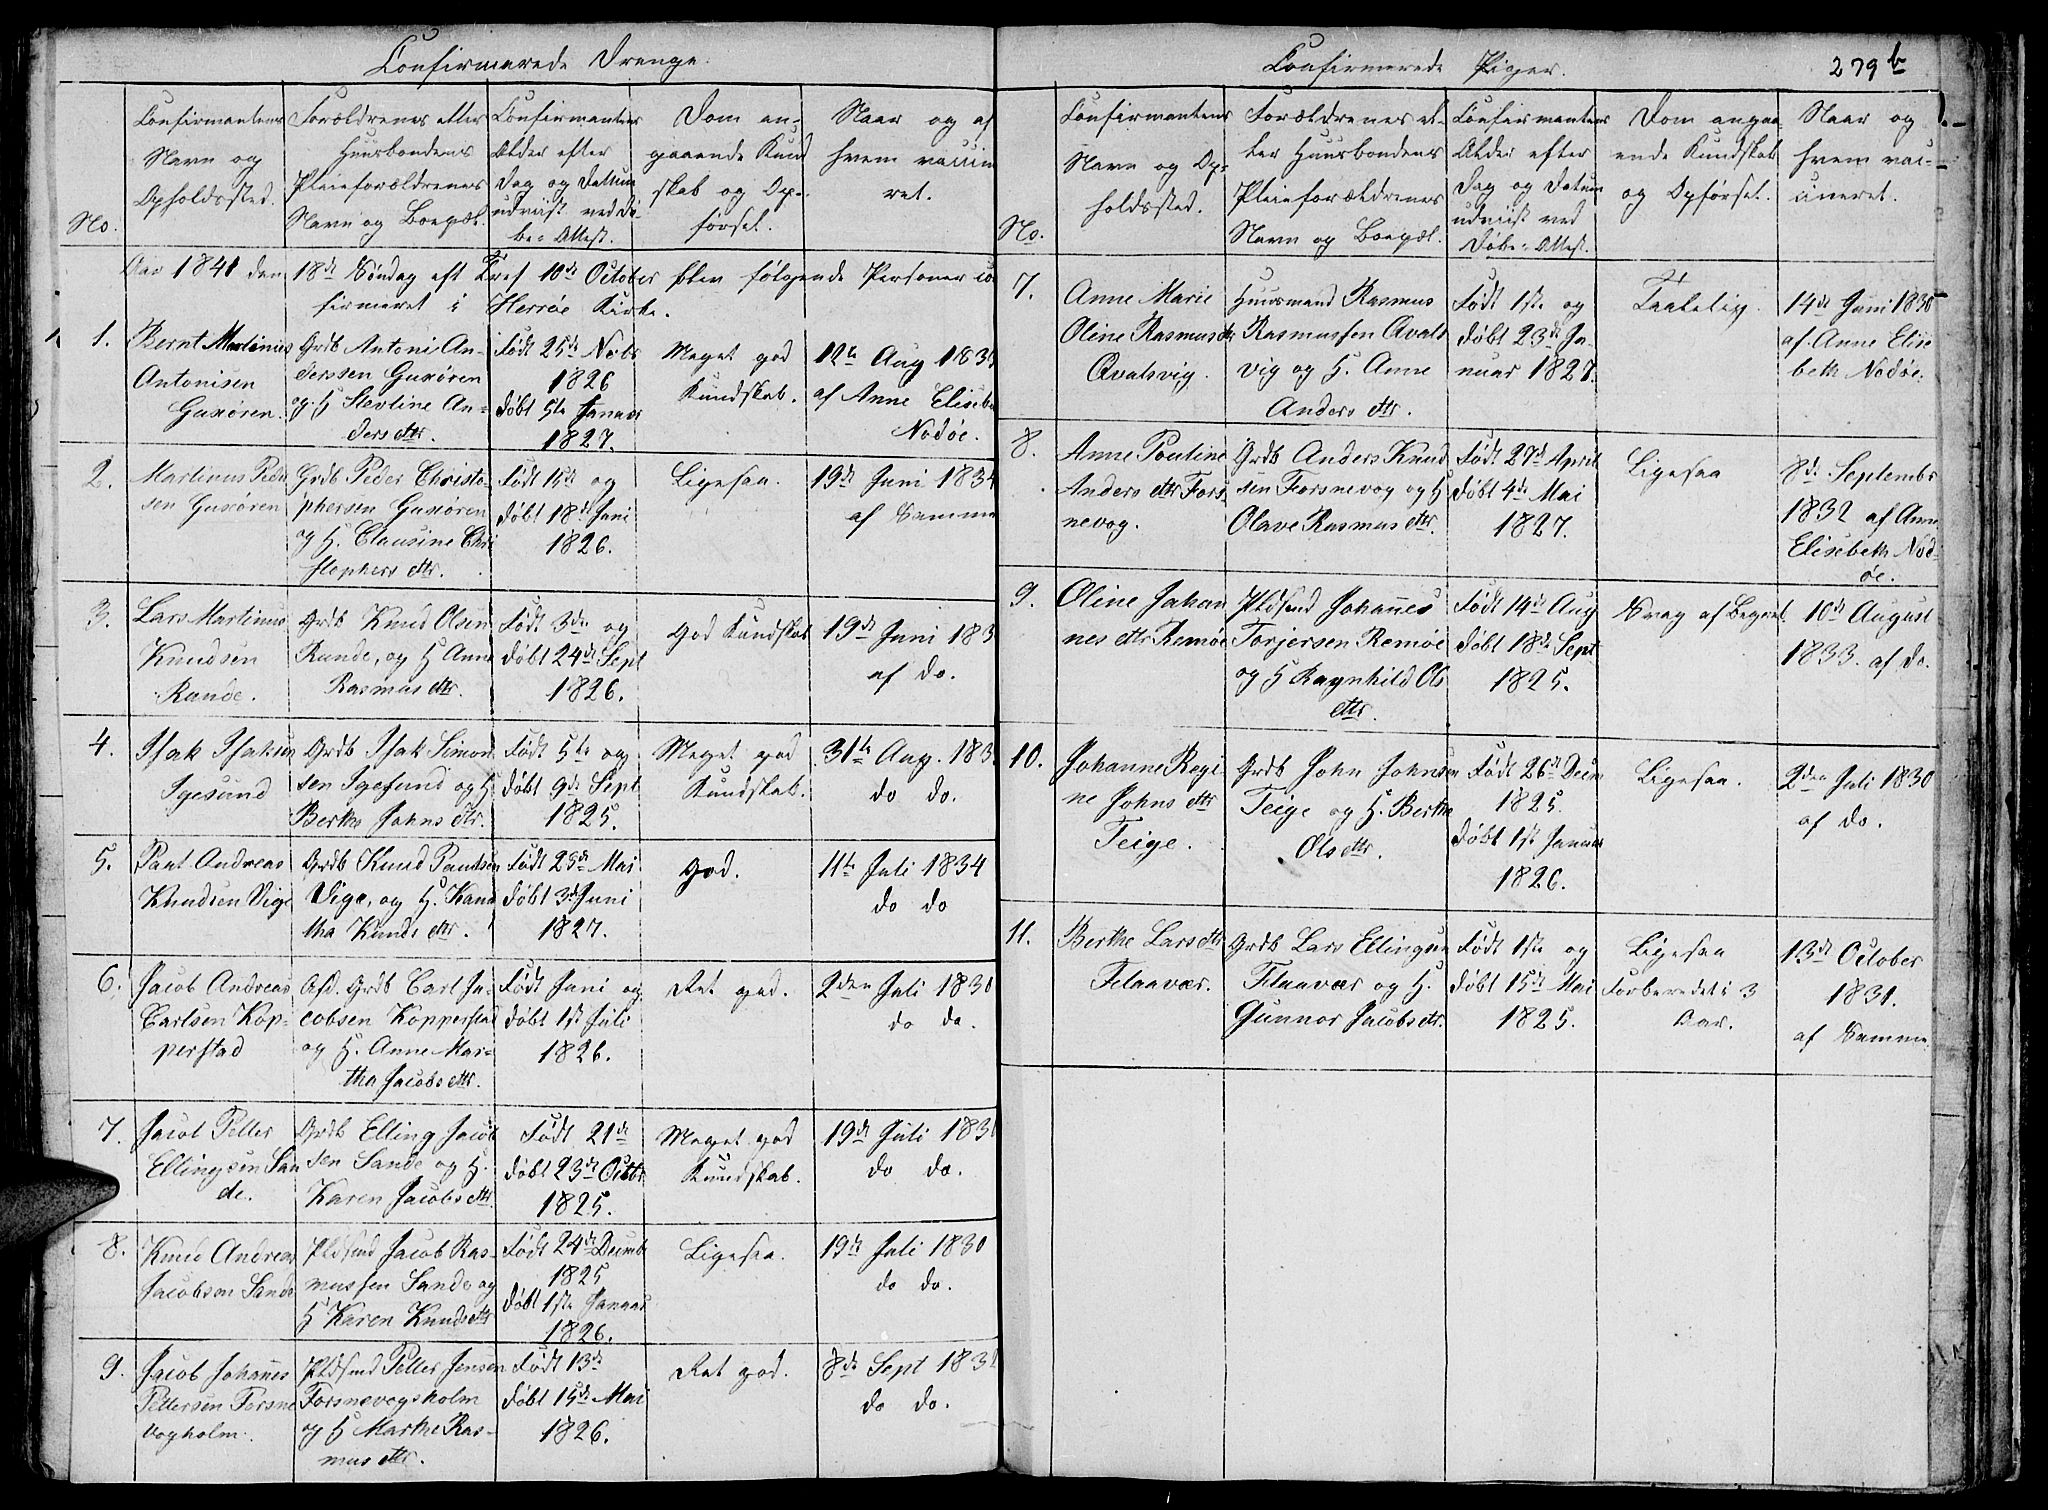 Confirmerede Drenge.
No.
Confirmantens
Navn og
Opholdssted.
Forældrenes eller
Huusbondens
Pleieforældrenes
Navn og Boepæl.
Confirmantens
Alder efter
Dag og Datum
udviist ved Dø-
be-Attest.
Dom an-
gaaende Kund
skab og Op-
førsel.
Naar og af
hvem vaccin
ret.
Aar 1841 den 18de Søndag eft Tref 10de October blev følgende Personer co
firmeret i Herrøe Kirke.
1.
Bernt Martinus
Antonisen
Guxøren.
Grdb Antoni An-
derssen Guxøren
og H Stevline An-
ders dttr.
Født 25de Novbr
1826
døbt 5te Januar
1827.
Meget god
Kundskab.
12te Aug 183
af Anne Elisebe
Nodøe.
2.
Martinus Peder
sen Guxøren
Grdb Peder Christo-
phersen Guxøren
og H. Clausine Chri
stophers dttr.
Født 15de og
døbt 18de Juni
1826.
Ligesaa.
19de Juni 1834
af Samme
3.
Lars Martinus
Knudsen
Runde.
Grdb Knud Olsen
Runde, og H Anne
Rasmus dttr.
Født 3die og
døbt 24de Sept
1826.
God Kundskab
19de Juni 183
af do.
4.
Isak Isaksen
Igesund
Grdb Isak Simon
sen Igesund og H
Berthe Johns dtr.
Født 5te og
døbt 9de Sept
1825.
Meget god
Kundskab.
31te Aug. 183
do do.
5.
Paul Andreas
Knudsen Vige
Grdb Knud Paulsen
Vige, og H. Kano
tha Knuds dttr.
Født 25de Mai
døbt 3die Juni
1827.
God.
11te Juli 1834
do do
6.
Jacob Andreas
Carlsen Kop-
perstad
Afd. Grdb Carl Ja-
cobsen Kopperstad
og H. Anne Mar-
tha Jacobs dttr.
Født Juni og
døbt 1ste Juli
1826.
Ret god.
2den Juli 1830
do do.
7.
Jacob Petter
Ellingsen San
de.
Grdb Elling Jacob
sen Sande og H.
Karen Jacobs dttr.
Født 21de
døbt 23de Octbr
1825.
Meget god
Kundskab.
19de Juli 1830
do do.
8.
Knud Andreas
Jacobsen Sande
Pldsmd Jacob Ras-
mussen Sande og
H Karen Knuds dttr
Født 24de Decemb
1825
døbt 1ste Januar
1826.
Ligesaa.
19de Juli 1830
do do.
9.
Jacob Johannes
Pettersen Forsne
vogholm.
Pldsmd Petter Jensen
Forsnevogsholm
og H Marthe Ras-
mus dttr.
Født 13de
døbt 15de Mai
1826.
Ret god.
8de Sept 183
do do.
Confirmerede Piger.
279b
No.
Confirmantens
Navn og Op-
holdssted.
Forældrenes el-
ler Huusbondens
Pleieforældrenes
Navn og Boepæl.
Confirmantens
Alder efter
Dag og Datum
udviist ved
Døbe-Attest.
Dom angaa-
ende Kundskab
og Opførsel.
Naar og
hvem vac-
cineret.
7.
Anne Marie
Oline Rasmusdtr
Qvalsvig.
Huusmand Rasmus
Rasmussen Qvals
vig og H. Anne
Anders dttr.
Født 1ste og
døbt 23de Ja-
nuar 1827.
Taalelig.
14de Juni 1830
af Anne Elise
beth Nodøe.
8.
Anne Pouline
Anders dttr Fors-
nevog.
Grdb Anders Knud
sen Forsnevog og H
Olave Rasmus dttr.
Født 27de April
døbt 4de Mai
1827.
Ligesaa
8de Septembr
1832 af Anne
Elisebeth Nod-
øe.
9.
Oline Johan
nes dttr Remøe
Pldsmd Johannes
Torjersen Remøe
og H Ragnhild Ols
dttr.
Født 14de Aug
døbt 18de Sept
1825.
Svag af Begreb.
10de August
1833. af do.
10.
Johanne Regi
ne Johns dttr
Teige.
Grdb John Johnsen
Teige og H. Berthe
Ols dttr.
Født 26de Decm
1825.
døbt 1ste Januar
1826.
Ligesaa.
2den Juli 1830
af do.
11.
Berthe Lars dttr
Flaavær.
Grdb Lars Ellingsen
Flaavær og H.
Gunnor Jacobs dtr.
Født 1ste og
døbt 15de Mai
1825.
Ligesaa
Forberedet i 3
Aar.
13de October
1831.
af Samme.